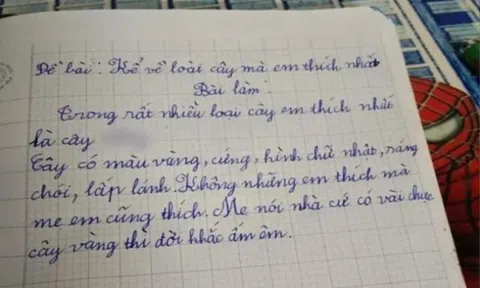 Đề bài: Kể về loài cây mà em thích nhất
Bài làm
Trong rất nhiều loại cây em thích nhất
là cây
Cây có màu vàng, cứng, hình chữ nhật, sáng
chói, lấp lánh. Không những em thích mà
mẹ em cũng thích. Mẹ nói nhà cứ có vài chục
cây vàng thì đời khắc ấm êm.